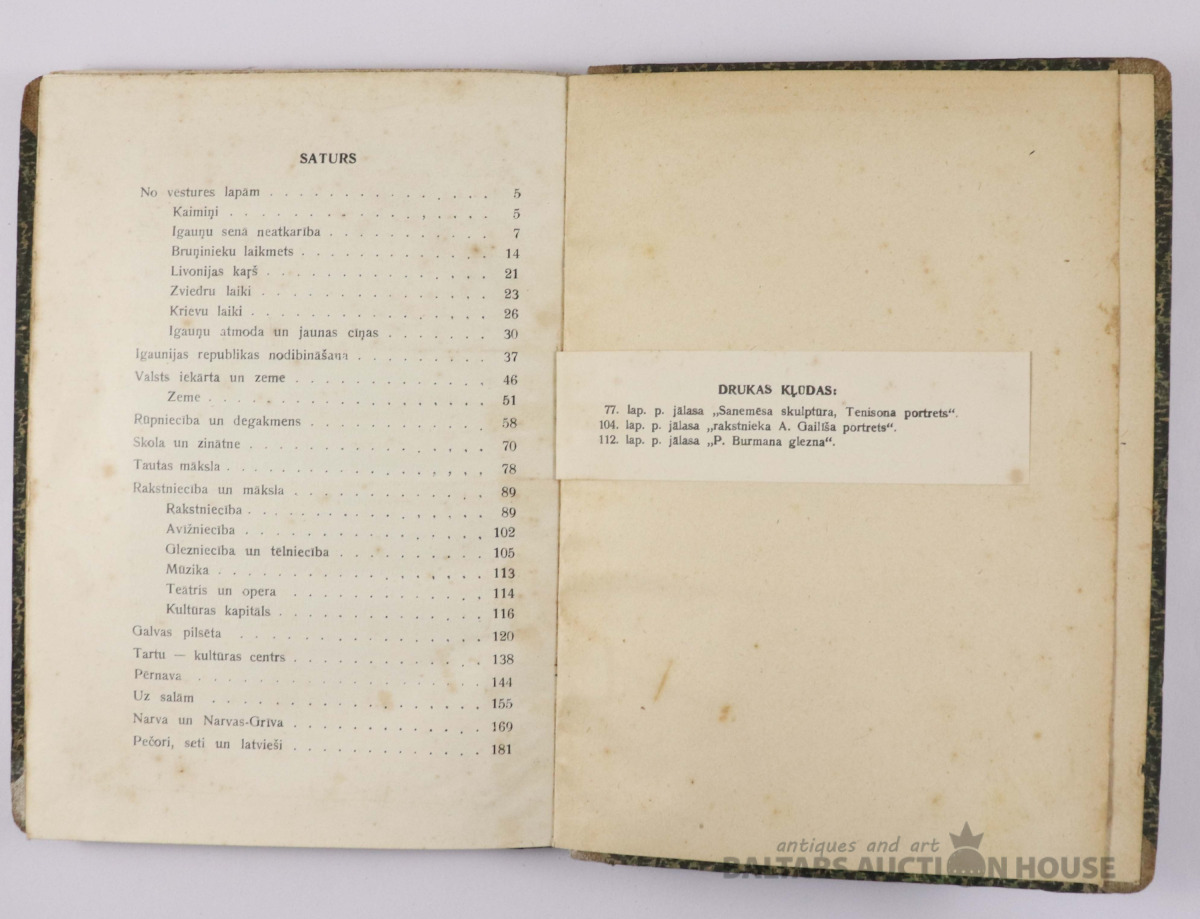 SATURS
No vestures lapām . . . . . . . . . . . . . . . 5
Kaimiņi . . . . . . . . . . . . . . 5
Igauņu senā neatkarība . . . . . . . . . 7
Bruņinieku laikmets . . . . . . . . . . 14
Livonijas kaŗš . . . . . . . . . . . . 21
Zviedru laiki . . . . . . . . . . . . 23
Krievu laiki . . . . . . . . . . . . . 26
Igauņu atmoda un jaunas cīņas . . . . . . 30
Igaunijas republikas nodibināšana . . . . . . . . 37
Valsts iekārta un zeme . . . . . . . . . . . 46
Zeme . . . . . . . . . . . . . . . 51
Rūpniecība un degakmens . . . . . . . . . . 58
Skola un zinātne . . . . . . . . . . . . . 70
Tautas māksla . . . . . . . . . . . . . . 78
Rakstniecība un māksla . . . . . . . . . . . 89
Rakstniecība . . . . . . . . . . . . . 89
Avīžniecība . . . . . . . . . . . . . 102
Glezniecība un tēlniecība . . . . . . . . 105
Mūzika . . . . . . . . . . . . . . 113
Teātris un opera . . . . . . . . . . 114
Kultūras kapitāls . . . . . . . . . . . 116
Galvas pilsēta . . . . . . . . . . . . . 120
Tartu — kultūras centrs . . . . . . . . . . 138
Pērnava . . . . . . . . . . . . . . . 144
Uz salām . . . . . . . . . . . . . . . 155
Narva un Narvas-Grīva . . . . . . . . . . 169
Pečori, seti un latvieši . . . . . . . . . . 181
DRUKAS KĻŪDAS:
77. lap. p. jālasa „Sanemēsa skulptūra, Tenisona portrets“.
104. lap. p. jālasa „rakstnieka A. Gailīša portrets“.
112. lap. p. jālasa „P. Burmana glezna“.
antiques and art
BALTARS AUCTION HOUSE